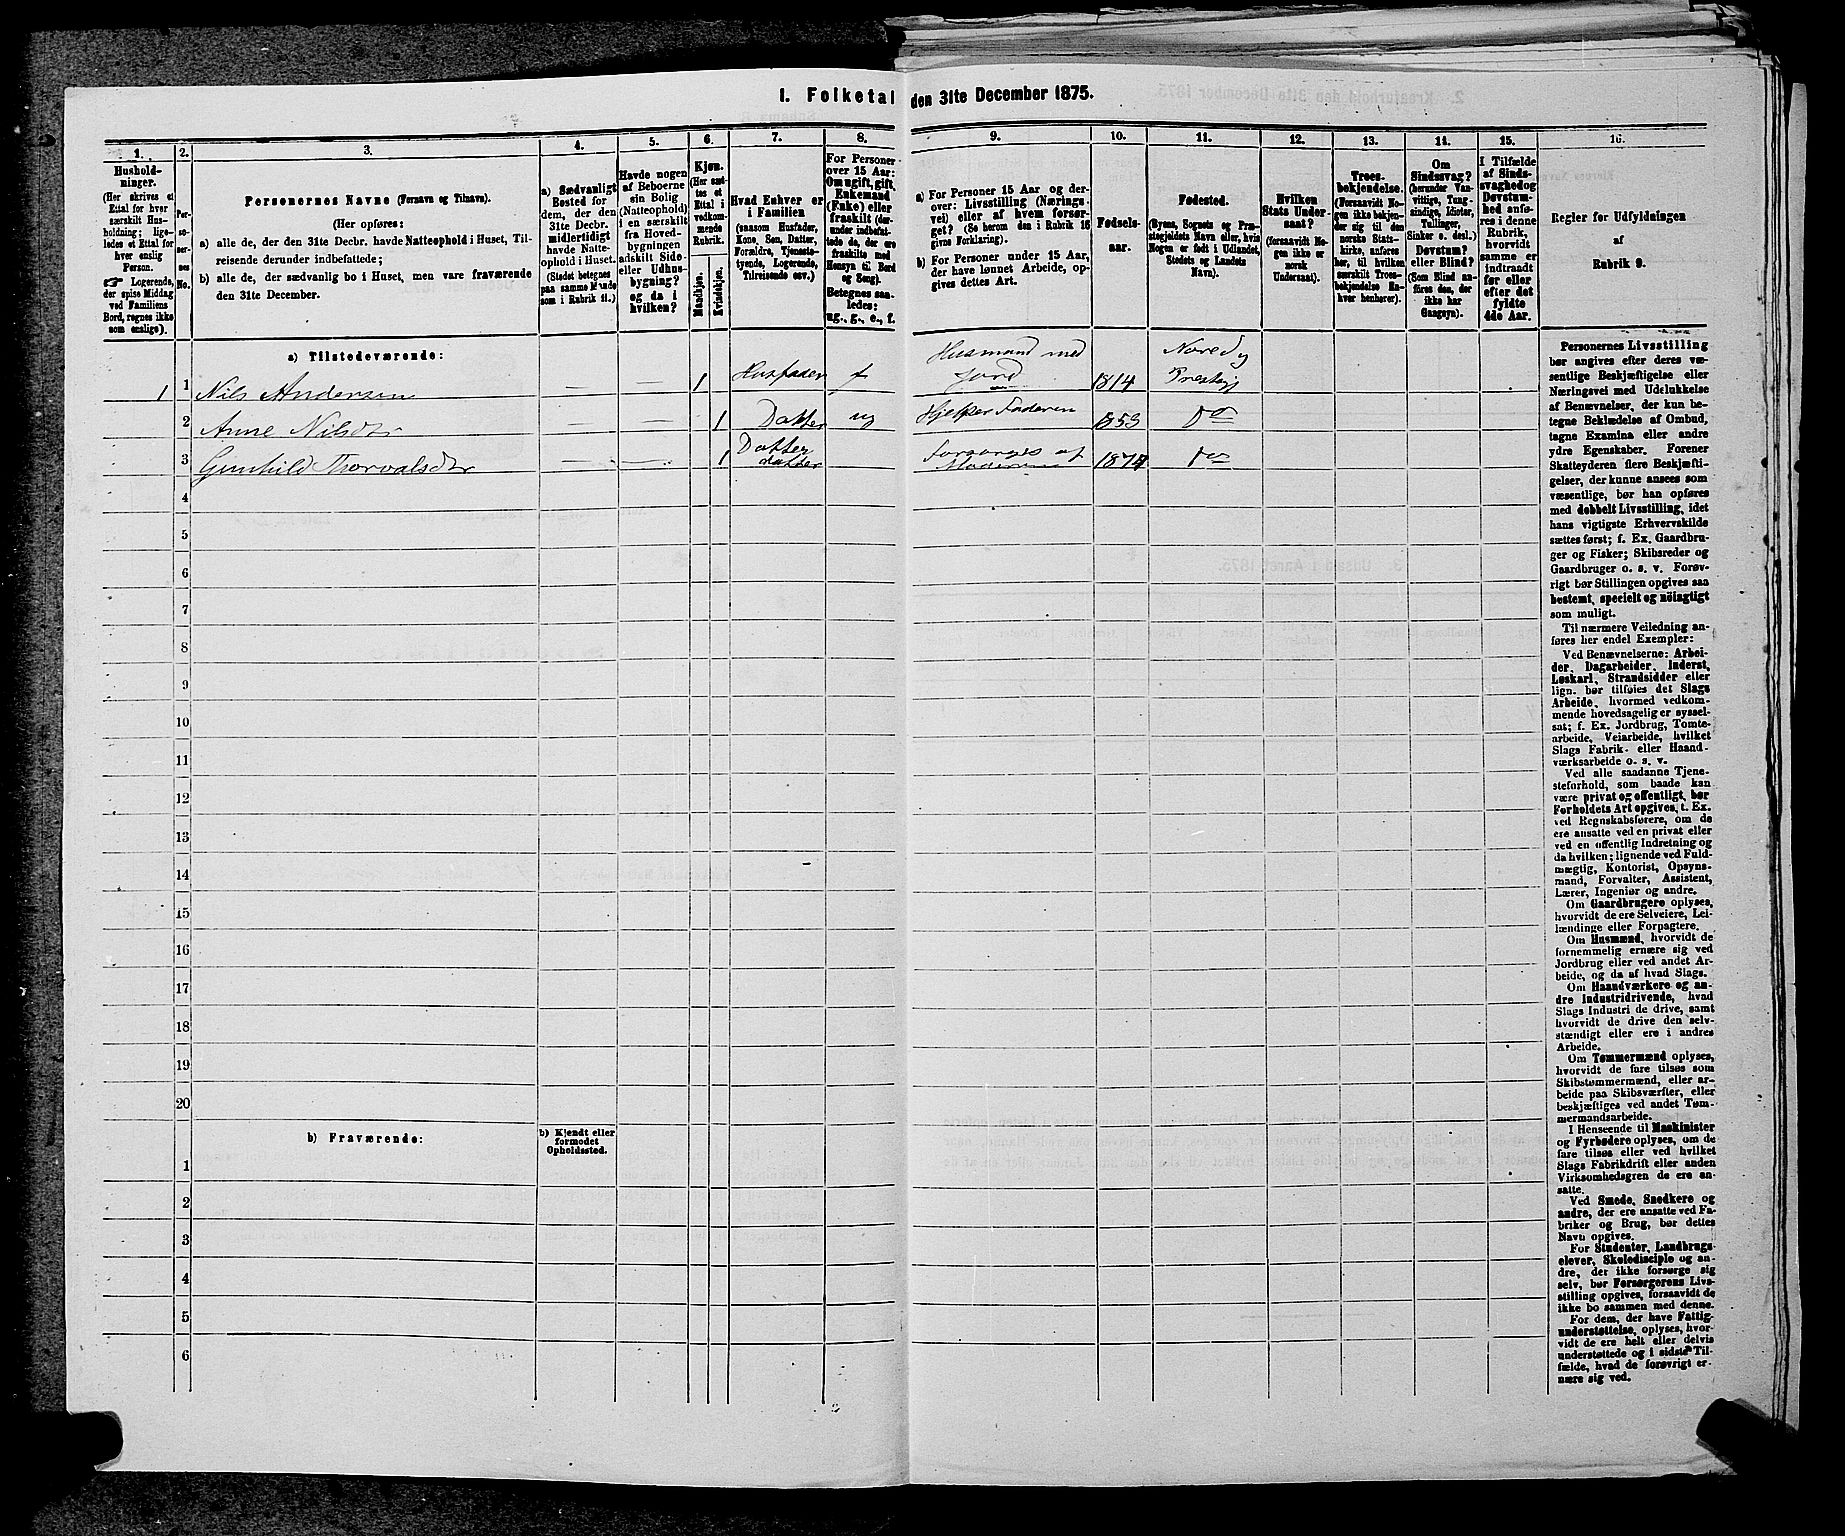 1. Folketal den 31te December 1875.
1.
Hushold-
ninger.
(Her skrives et
Ettal for hver
særskilt Hus-
holdning; lige-
ledes et Ettal for
hver enslig
Person.
☞ Logerende,
der spise Middag
ved Familiens
Bord, regnes ikke
som enslige).
2.
Per-
so-
ner-
nes
No.
3.
Personernes Navne (Fornavn og Tilnavn).
(Her opføres:
a) alle de, der den 31te Decbr. havde Natteophold i Huset, Til-
reisende derunder indbefattede;
b) alle de, der sædvanlig bo i Huset, men vare fraværende
den 31te December.
4.
a) Sædvanligt
Bosted for
dem, der den
31te Decbr.
midlertidigt
havde Natte-
ophold i Huset.
(Stedet betegnes
paa samme Maade
som i Rubrik 11.)
5.
Havde nogen
af Beboerne
sin Bolig
(Natteophold)
i en særskilt
fra Hoved-
bygningen
adskilt Side-
eller Udhus-
bygning?
og da i
hvilken?
6.
Kjøn.
(Her sæt-
tes et
Ettal i
vedkom-
mende
Rubrik.
Mandkjøn.
Kvindekjøn.
7.
Hvad Enhver er
i Familien
(saasom Husfader,
Kone, Søn, Datter,
Forældre, Tjeneste-
tyende, Logerende,
Tilreisende osv.)
8.
For Personer
over 15 Aar:
Om ugift, gift,
Enkemand
(Enke) eller
fraskilt (der-
under indbefat-
tede de, der ere
fraskilte med
Hensyn til Bord
og Seng).
Betegnes saa-
ledes:
ug., g., e., f.
9.
a) For Personer 15 Aar og der-
over: Livsstilling (Nærings-
vei) eller af hvem forsør-
get? (Se herom den i Rubrik 16
givne Forklaring).
b) For Personer under 15 Aar,
der have lønnet Arbeide, op-
gives dettes Art.
10.
Fødsels-
aar.
11.
Fødested.
(Byens, Sognets og Præ-
stegjeldets Navn eller, hvis
Nogen er født i Udlandet,
Stedets og Landets
Navn).
12.
Hvilken
Stats Under-
saat?
(forsaavidt No-
gen ikke er
norsk
Undersaat).
13.
Troes-
bekjendelse.
(Forsaavidt No-
gen ikke bekjen-
der sig til den
norske Stats-
kirke, anføres
her, til hvilken
særskilt Troes-
bekjendelse En-
hver henhører).
14.
Om
Sindssvag?
(herunder Van-
vittige, Tung-
sindige, Idioter,
Tullinger,
Sinker o. desl.)
Døvstum?
eller Blind?
(Som Blind an-
føres den, der
ikke har
Gangsyn).
15.
I Tilfælde
af Sinds-
svaghed og
Døvstum-
hed anfø-
res i denne
Rubrik,
hvorvidt
samme er
indtraadt
før eller
efter det
fyldte
4de Aar.
16.
Regler for Udfyldningen
af
Rubrik 9.
a) Tilstedeværende:
1 1 Nils Andersen — — 1 Husfader f Husmand med Jord 1814 Norederg Prestegj
2 Anne Nilsdtr — — 1 Datter ug Hjelper Faderen 1853 Do
3 Gunhild Thorvalsdtr 1 Datter datter Forsørges af Moderen 1874 Do
4
5
6
7
8
9
10
11
12
13
14
15
16
17
18
19
20
b) Fraværende:
b) Kjendt eller
formodet
Opholdssted.
1
2
3
4
5
6
Personernes Livsstilling
bør angives efter deres væ-
sentlige Beskjæftigelse eller
Næringsvei med Udelukkelse
af Benævnelser, der kun be-
tegne Beklædelse af Ombud,
tagne Examina eller andre
ydre Egenskaber. Forener
Skatteyderen flere Beskjæfti-
gelser, der kunne ansees som
væsentlige, bør han opføres
med dobbelt Livsstilling, idet
hans vigtigste Erhvervskilde
sættes først; f. Ex. Gaardbru-
ger og Fisker; Skibsreder og
Gaardbruger o. s. v. Forøv-
rigt bør Stillingen opgives saa
bestemt, specielt og nöiagtigt
som muligt.
Til nærmere Veiledning an-
føres her endel Exempler:
Ved Benævnelserne: Arbei-
der, Dagarbeider, Inderst,
Løskarl, Strandsidder eller
lign. bør tilføies det Slags
Arbeide, hvormed vedkom-
mende hovedsagelig er syssel-
sat; f. Ex. Jordbrug, Tomte-
arbeide, Veiarbeide, hvilket
Slags Fabrik- eller Haand-
værksarbeide o. s. v.
Ved alle saadanne Tjene-
steforhold, som baade kan
være privat og offentligt, bør
Forholdets Art opgives, t. Ex.
ved Regnskabsførere, om de
ere ansatte ved en privat eller
ved en offentlig Indretning og
da hvilken; lignende ved Fuld-
mægtig, Kontorist, Opsyns-
mand, Forvalter, Assistent,
Lærer, Ingeniør og andre.
Om Gaardbrugere oplyses,
hvorvidt de ere Selveiere, Lei-
lændinge eller Forpagtere.
Om Husmænd, hvorvidt de
fornemmelig ernære sig ved
Jordbrug eller ved andet Ar-
beide, og da af hvad Slags.
Om Haandværkere og an-
dre Industridrivende, hvad
Slags Industri de drive, samt
hvorvidt de drive den selv-
stændigt eller ere i andres
Arbeide.
Om Tømmermænd oplyses,
hvorvidt de fare tilsøs som
Skibstømmermænd, eller ar-
beide paa Skibsværfter, eller
beskjæftiges ved andet Tøm-
mermandsarbeide.
I Henseende til Maskinister
og Fyrbødere oplyses, om de
fare tilsøs eller ved hvilket
Slags Fabrikdrift eller anden
Virksomhedsgren de ere an-
satte.
Ved Smede, Snedkere og
andre, der ere ansatte ved Fa-
briker og Brug, bør dettes
Navn opgives.
For Studenter, Landbrugs-
elever, Skoledisciple og an-
dre, der ikke forsørge sig
selv, bør Forsørgerens Livs-
stilling opgives, forsaavidt de
ikke bo sammen med denne.
For dem, der have Fattig-
understøttelse, oplyses, hvor-
vidt de ere helt eller delvis
understøttede og i sidste Til-
fælde, hvad de forøvrigt er-
nære sig ved.